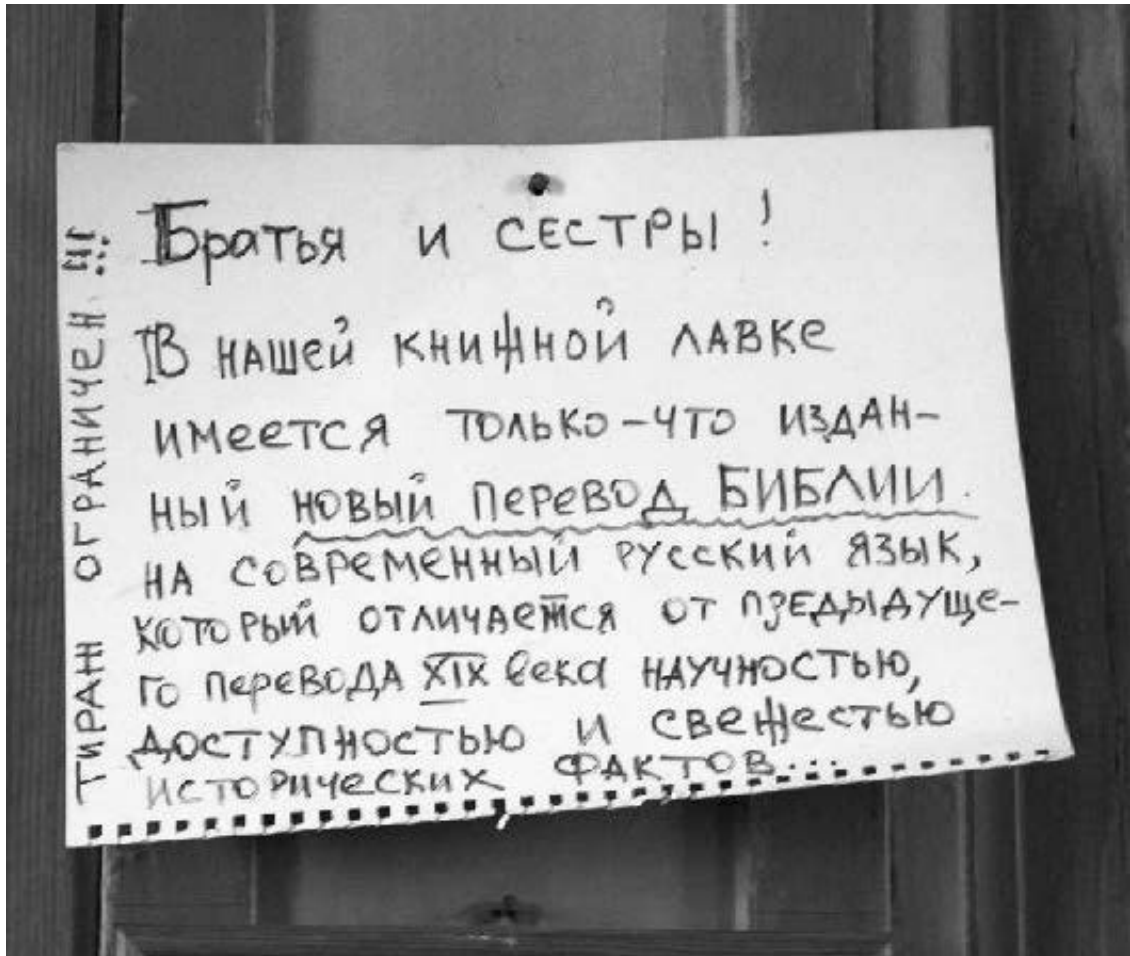 Братья и СЕСТРЫ!
В нашей книжной лавке
имеется только-что издан-
ный новый перевод БИБЛИИ.
на современный русский язык,
который отличается от предыдуще-
го перевода XIX века научностью,
доступностью и свежестью
исторических фактов...
тираж ограничен!!!